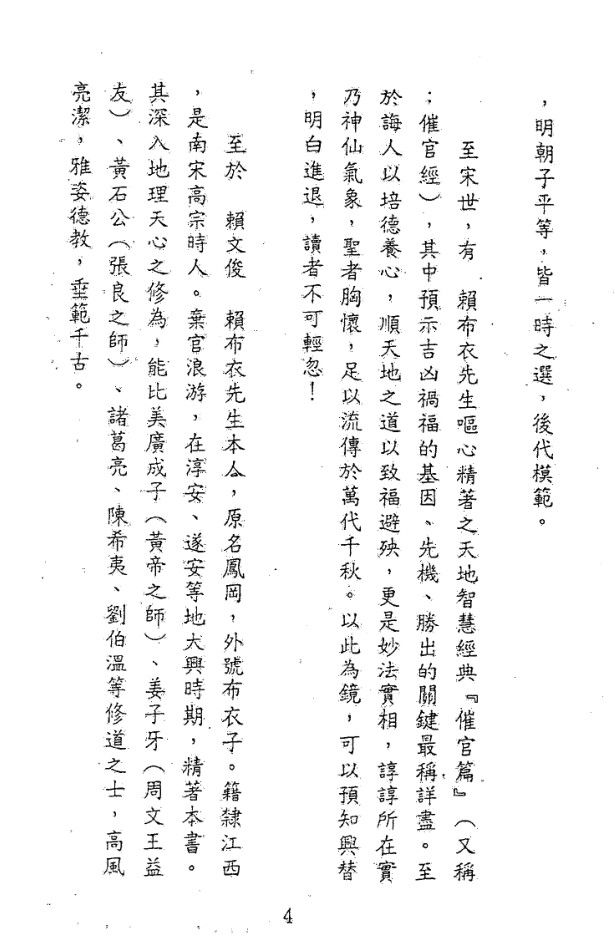 ，明朝子平等，皆一時之選，後代模範。
至宋世，有　賴布衣先生嘔心精著之天地智慧經典『催官篇』（又稱
；催官經），其中預示吉凶禍福的基因、先機、勝出的關鍵最稱詳盡。至
於誨人以培德養心，順天地之道以致福避殃，更是妙法實相，諄諄所在實
乃神仙氣象，聖者胸懷，足以流傳於萬代千秋。以此為鏡，可以預知興替
，明白進退，讀者不可輕忽！
至於　賴文俊　賴布衣先生本人，原名鳳岡，外號布衣子。籍隸江西
，是南宋高宗時人。棄官浪游，在淳安、遂安等地大興時期，精著本書。
其深入地理天心之修為，能比美廣成子（黃帝之師）、姜子牙（周文王益
友）、黃石公（張良之師）、諸葛亮、陳希夷、劉伯溫等修道之士，高風
亮潔，雅姿德教，垂範千古。
4